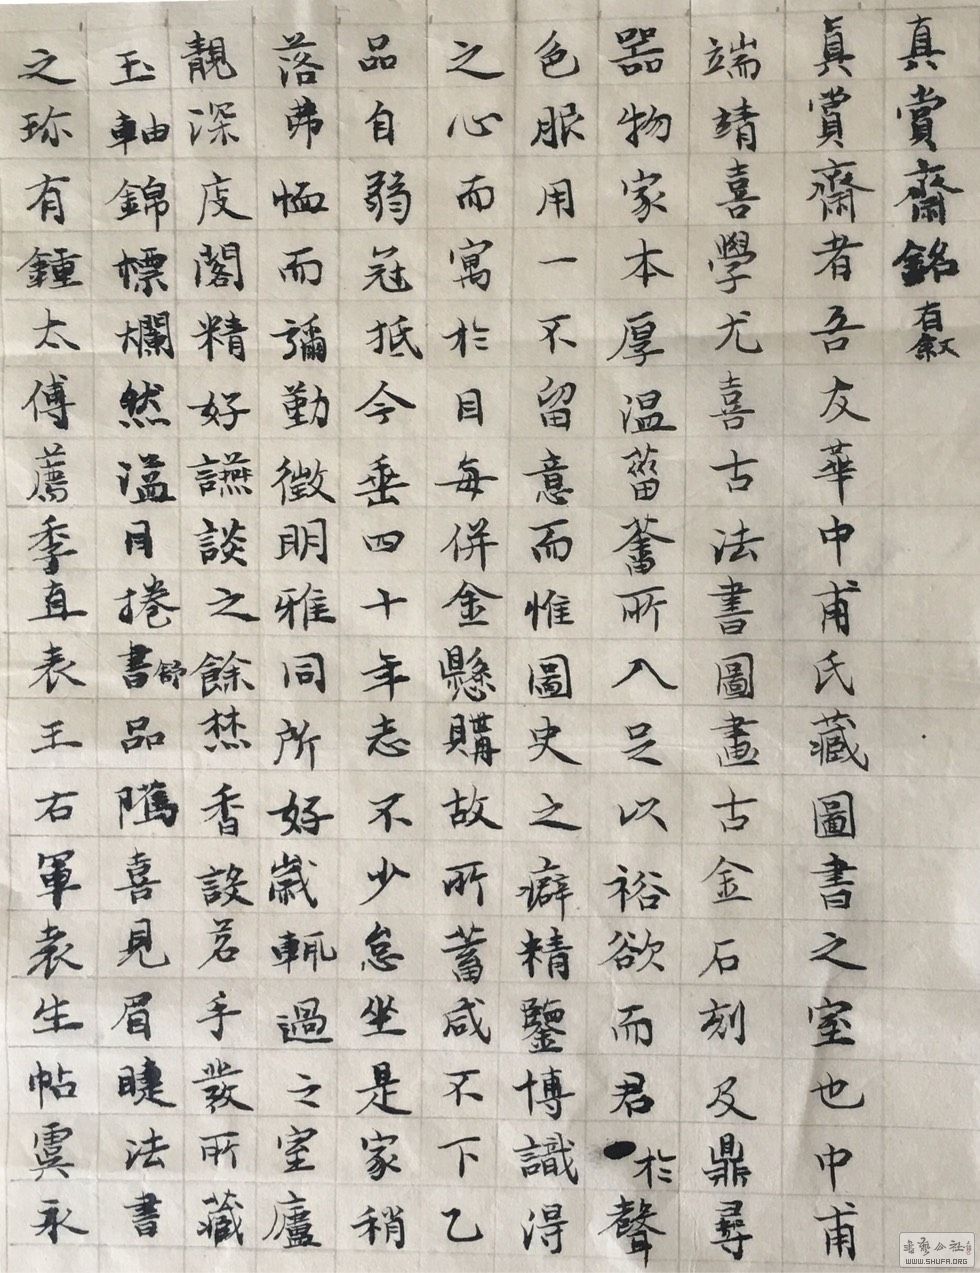 真賞齋銘有敘
真賞齋者吾友華中甫氏藏圖書之室也中甫
端靖喜學尤喜古法書圖畫古金石刻及鼎尋
器物家本厚溫菑畬所入足以裕欲而君於聲
色服用一不留意而惟圖史之癖精鑒博識得
之心而寓於目每併金懸購故所蓄咸不下乙
品自弱冠抵今垂四十年志不少怠坐是家稍
落弗恤而彌勤徵明雅同所好歲輒過之室廬
靚深庋閣精好讌談之餘焚香設茗手發所藏
玉軸錦標爛然溢目捲書舒品隲喜見眉睫法書
之珎有鍾太傅薦季直表王右軍袁生帖虞永
書藝公社
WWW.SHUFA.ORG